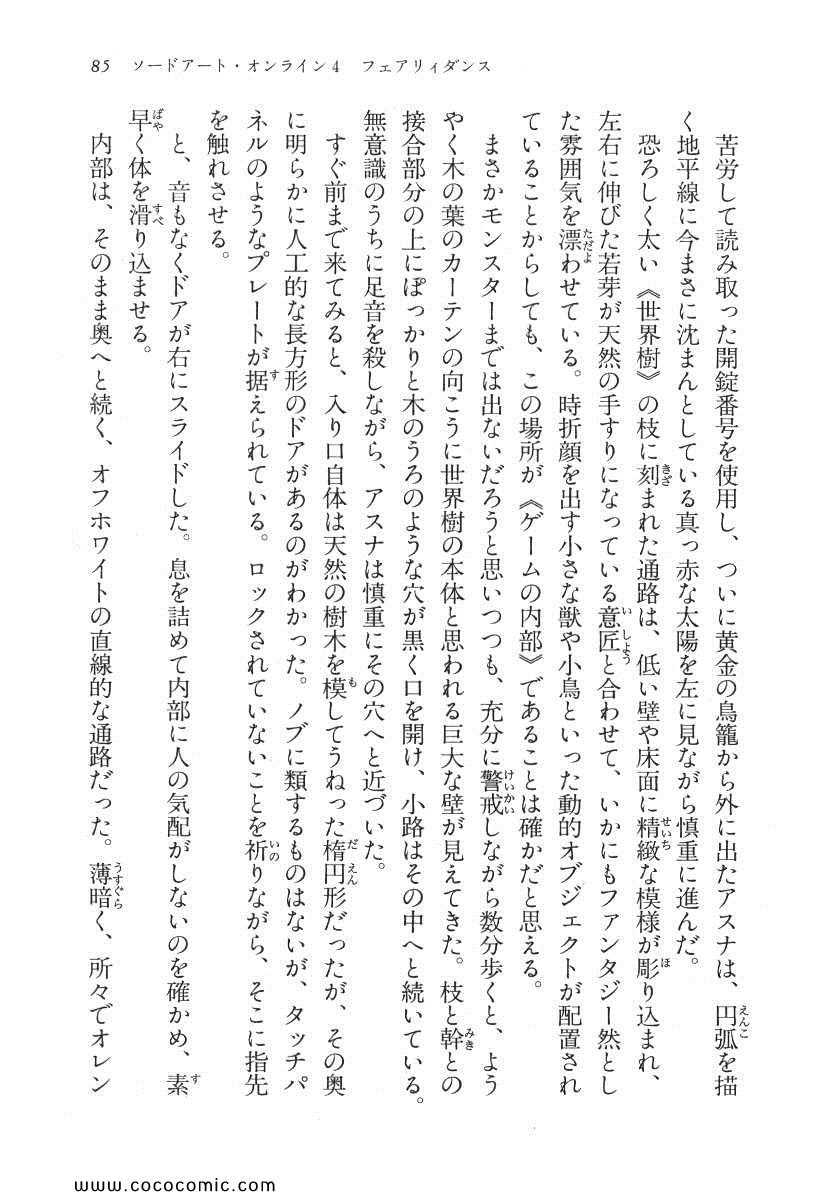 85　ソードアート・オンライン4　フェアリィダンス
　苦労して読み取った開錠番号を使用し、ついに黄金の鳥籠から外に出たアスナは、円弧を描
く地平線に今まさに沈まんとしている真っ赤な太陽を左に見ながら慎重に進んだ。
　恐ろしく太い《世界樹》の枝に刻まれた通路は、低い壁や床面に精緻な模様が彫り込まれ、
左右に伸びた若芽が天然の手すりになっている意匠と合わせて、いかにもファンタジー然とし
た雰囲気を漂わせている。時折顔を出す小さな獣や小鳥といった動的オブジェクトが配置され
ていることからしても、この場所が《ゲームの内部》であることは確かだと思える。
　まさかモンスターまでは出ないだろうと思いつつも、充分に警戒しながら数分歩くと、よう
やく木の葉のカーテンの向こうに世界樹の本体と思われる巨大な壁が見えてきた。枝と幹との
接合部分の上にぽっかりと木のうろのような穴が黒く口を開け、小路はその中へと続いている。
無意識のうちに足音を殺しながら、アスナは慎重にその穴へと近づいた。
　すぐ前まで来てみると、入り口自体は天然の樹木を模してうねった楕円形だったが、その奥
に明らかに人工的な長方形のドアがあるのがわかった。ノブに類するものはないが、タッチパ
ネルのようなプレートが据えられている。ロックされていないことを祈りながら、そこに指先
を触れさせる。
　と、音もなくドアが右にスライドした。息を詰めて内部に人の気配がしないのを確かめ、素
早く体を滑り込ませる。
　内部は、そのまま奥へと続く、オフホワイトの直線的な通路だった。薄暗く、所々でオレン
www.cococomic.com/